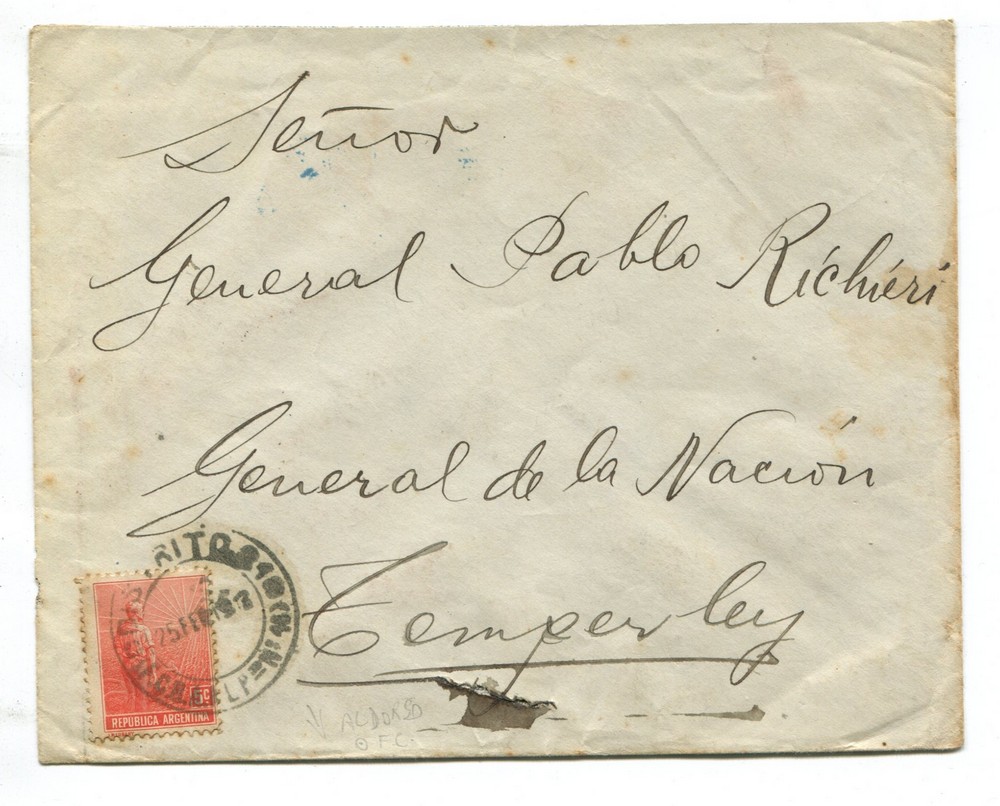 Señor
General Pablo Richieri
General de la Nación
Temperley
25 FEB
5c
REPUBLICA ARGENTINA
AL DORSO
F.C.